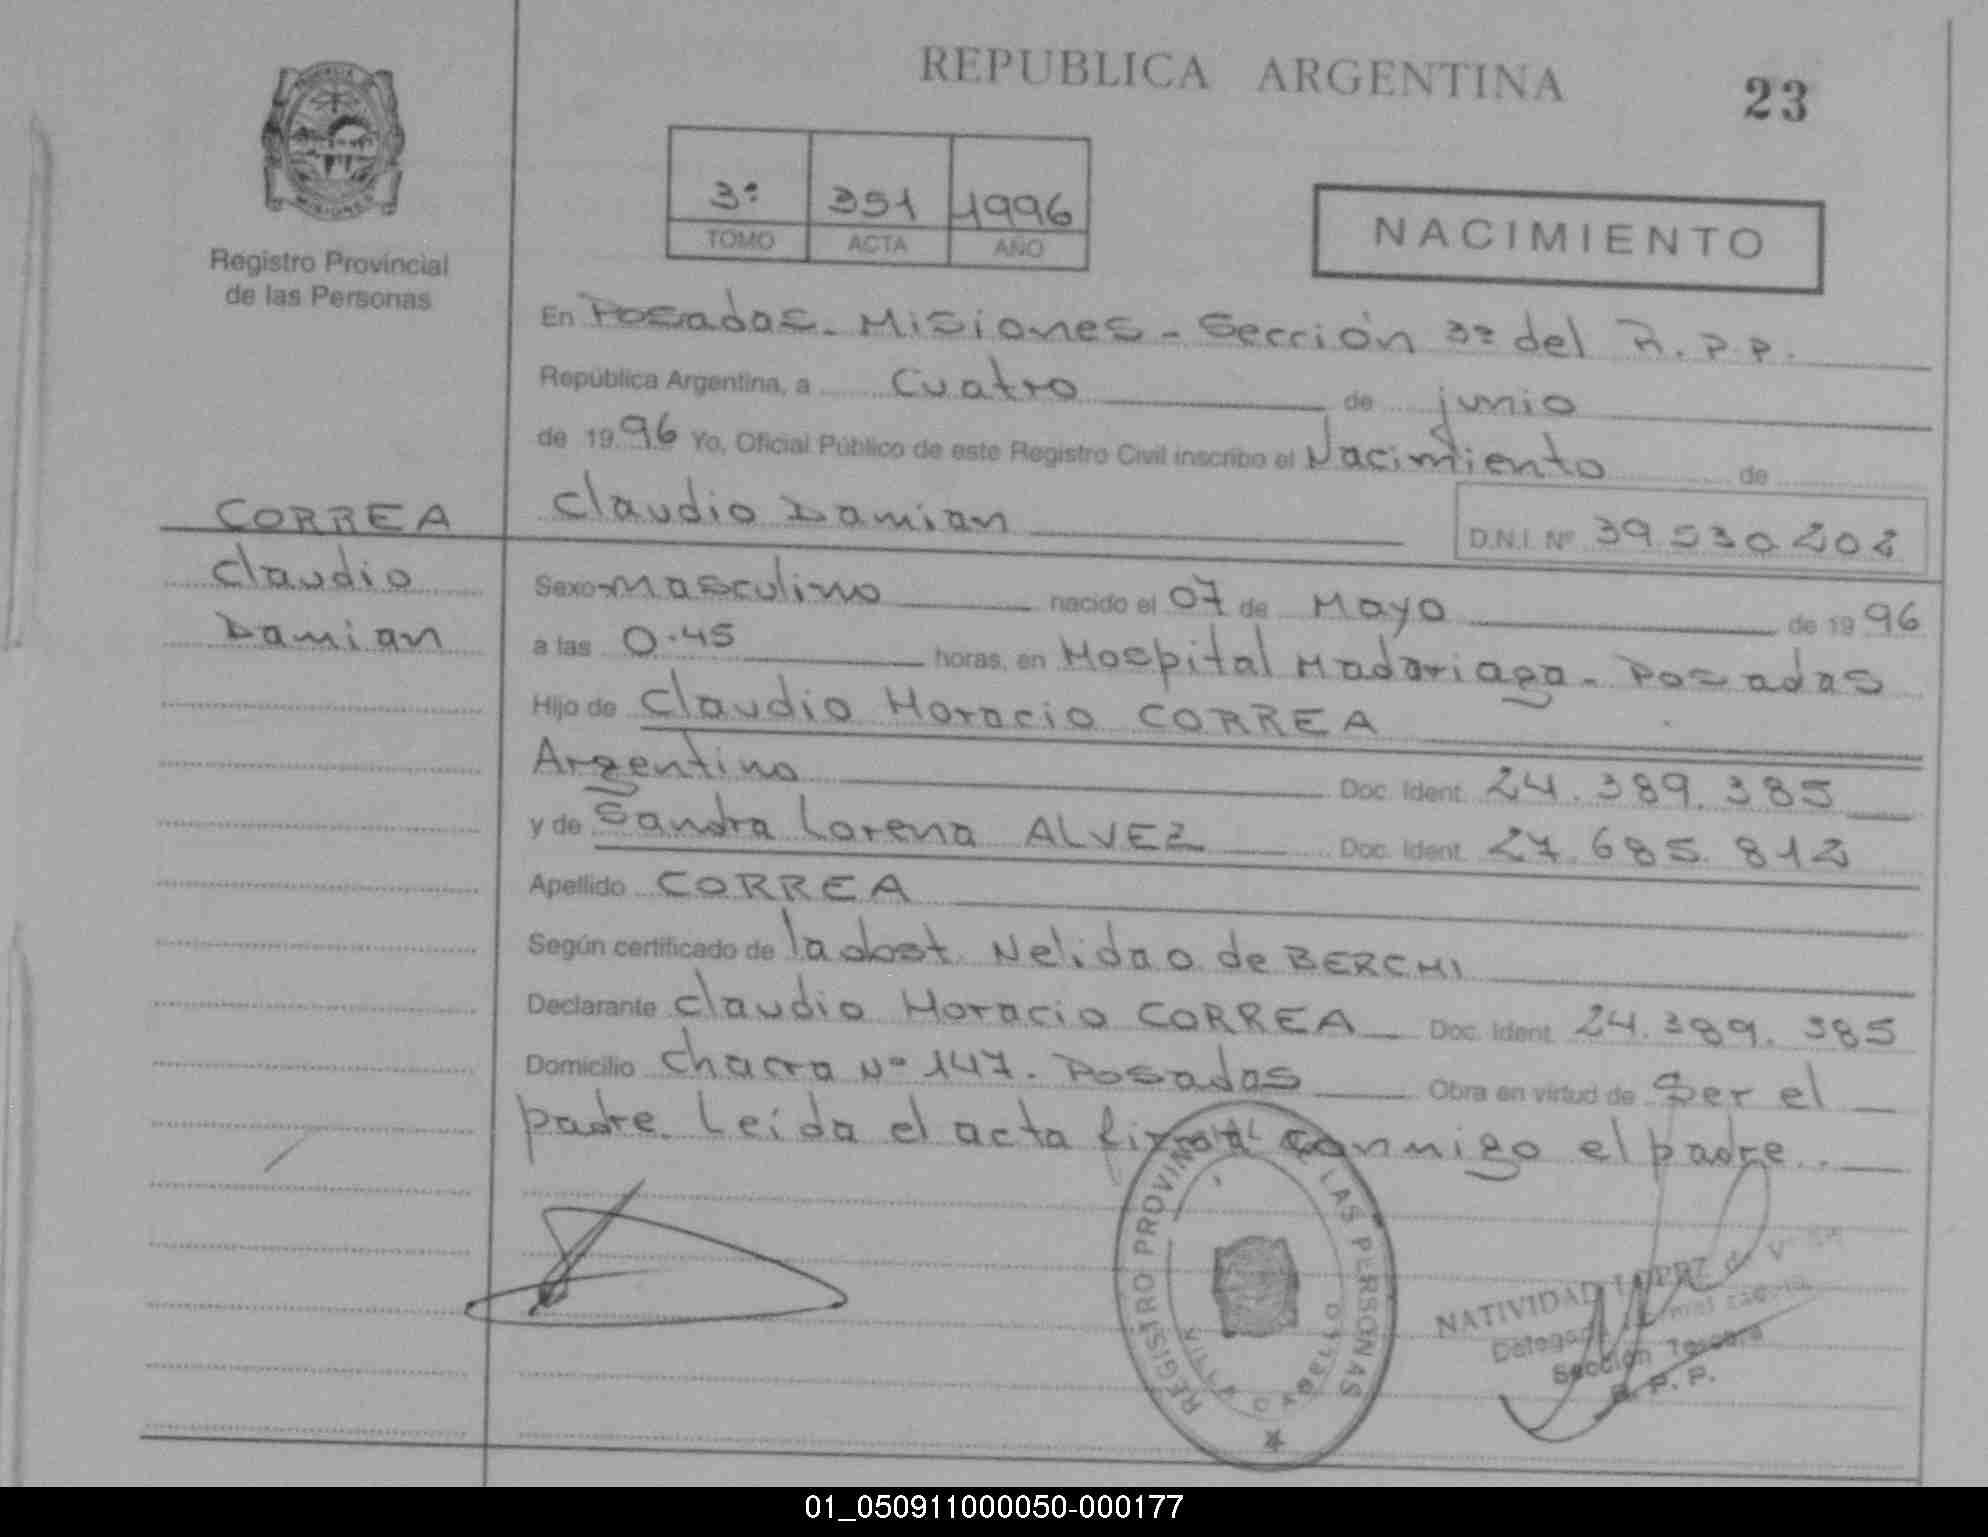 REPUBLICA ARGENTINA
23
3º 351 1996
TOMO ACTA AÑO
NACIMIENTO
MISIONES
Registro Provincial
de las Personas
En Posadas - Misiones - Sección 3ª del R.P.P.
República Argentina, a Cuatro de junio
de 1996 Yo, Oficial Público de este Registro Civil inscribo el Nacimiento de
CORREA
Claudio
Damian
Claudio Damian D.N.I. Nº 39.530.202
Sexo masculino nacido el 07 de Mayo de 1996
a las 0.45 horas, en Hospital Madariaga - Posadas
Hijo de Claudio Horacio CORREA
Argentino Doc. Ident. 24.389.385
y de Sandra Lorena ALVEZ Doc. Ident. 27.685.812
Apellido CORREA
Según certificado de la obst. Nelida O. de BERCHI
Declarante Claudio Horacio CORREA Doc. Ident. 24.389.385
Domicilio Chacra Nº 147. Posadas Obra en virtud de Ser el
padre. Leída el acta firma conmigo el padre.
REGISTRO PROVINCIAL DE LAS PERSONAS
NATIVIDAD LOPEZ de
Sección Tercera
R.P.P.
01_050911000050-000177